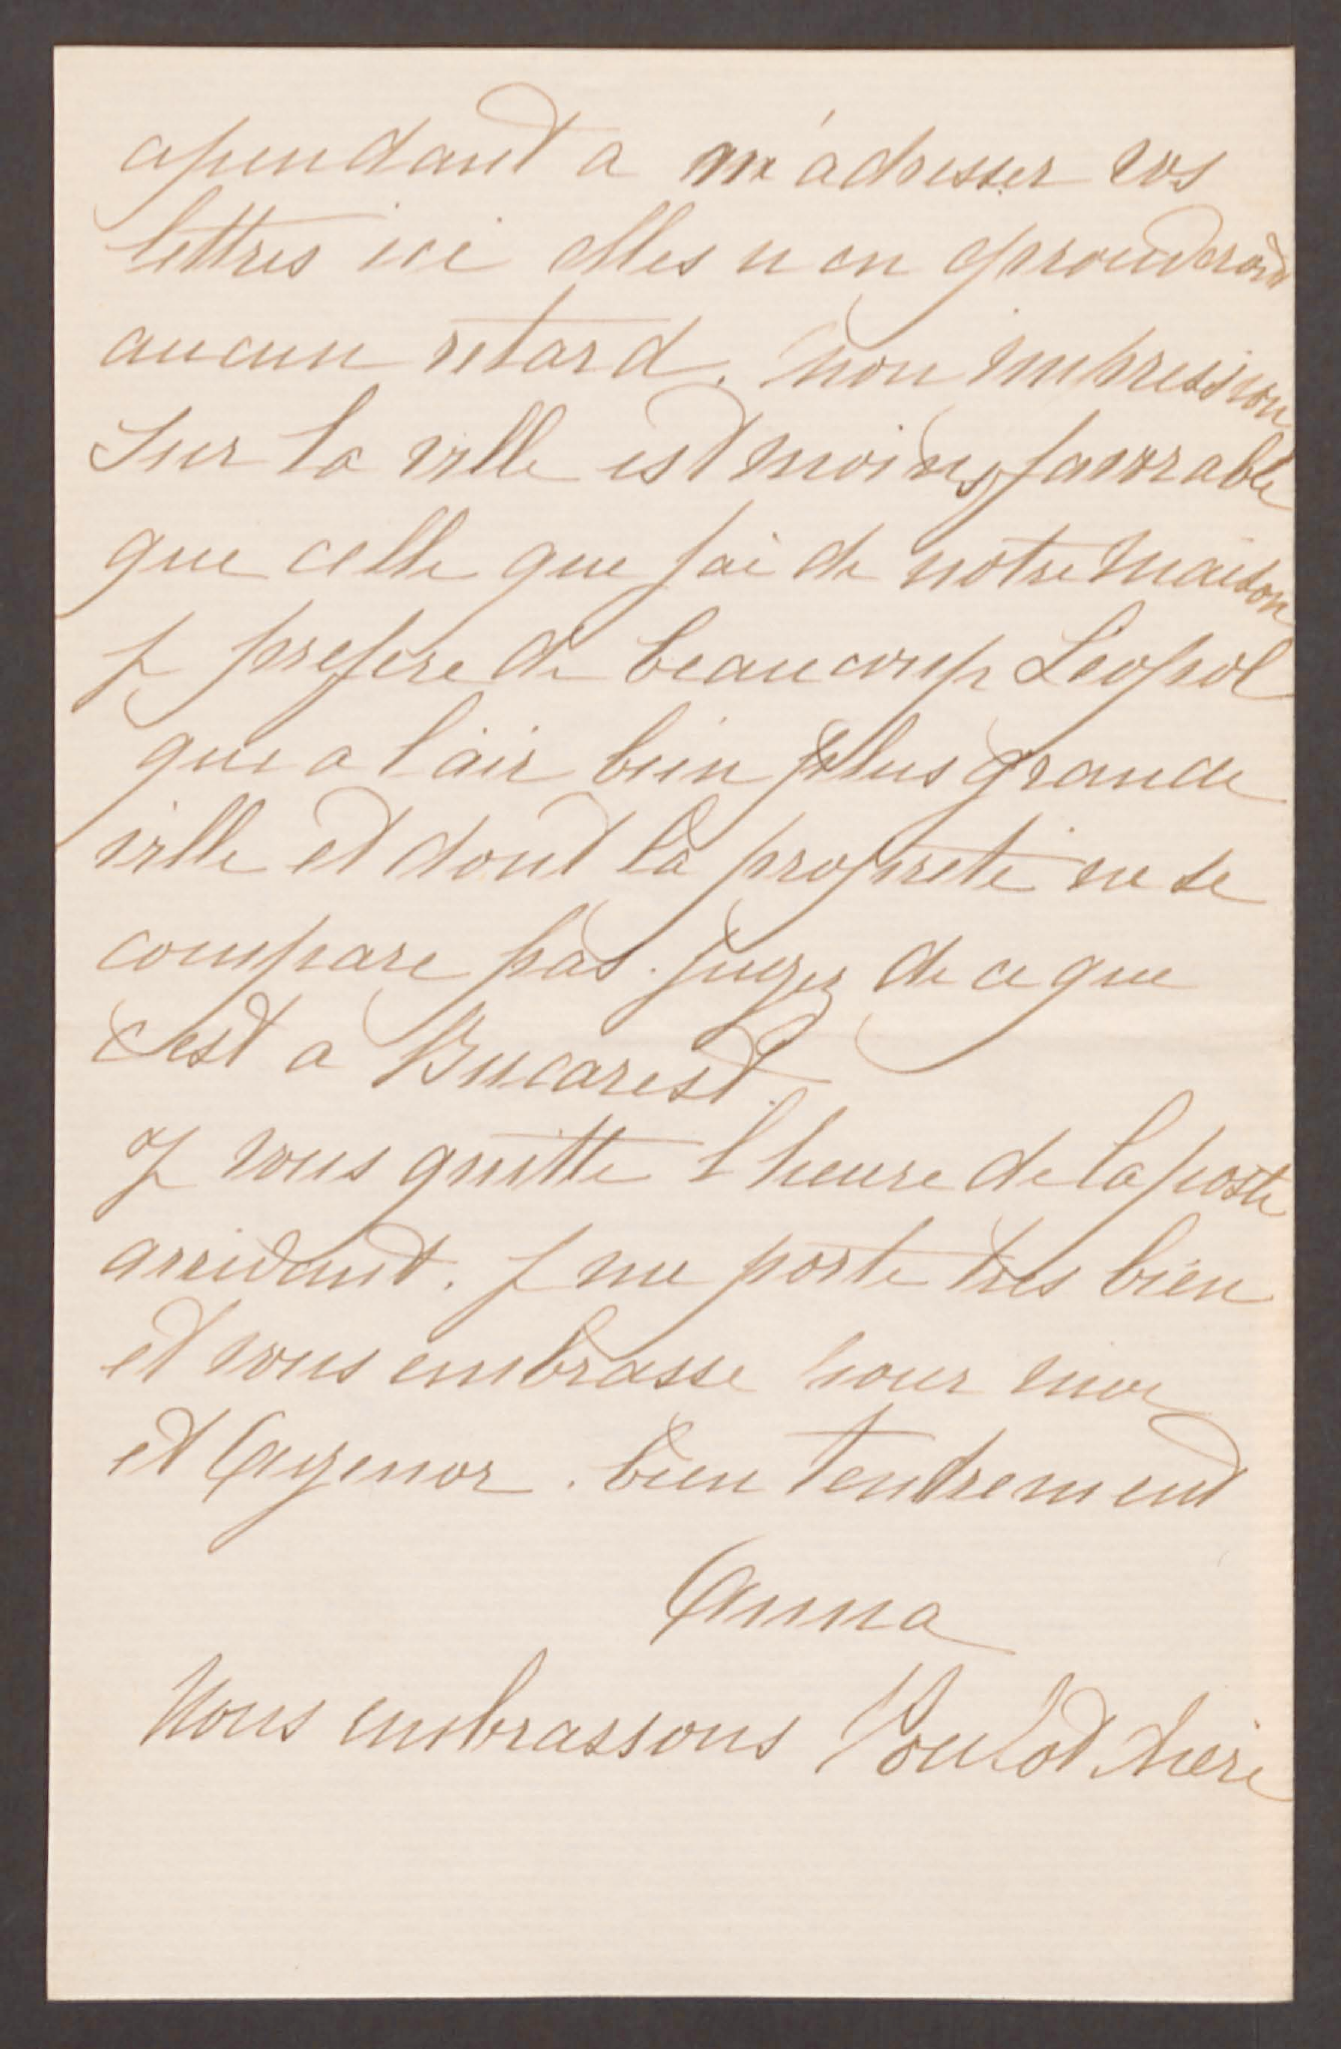 cependant a m'adresser vos
lettres ici elles n en eprouveront
aucun retard. Mon impression
sur la ville est moins favorable
que celle que j'ai de notre maison
Je prefere de beaucoup Léopol
qui a l'air bien plus grande
ville et dont la propreté ne se
compare pas. jugez de ce que
c'est a Bucarest.
Je vous quitte l heure de la poste
arrivant. Je me porte très bien
et vous embrasse pour moi
et Agenor. bien tendrement
Anna
Nous embrassons Loulot chérie